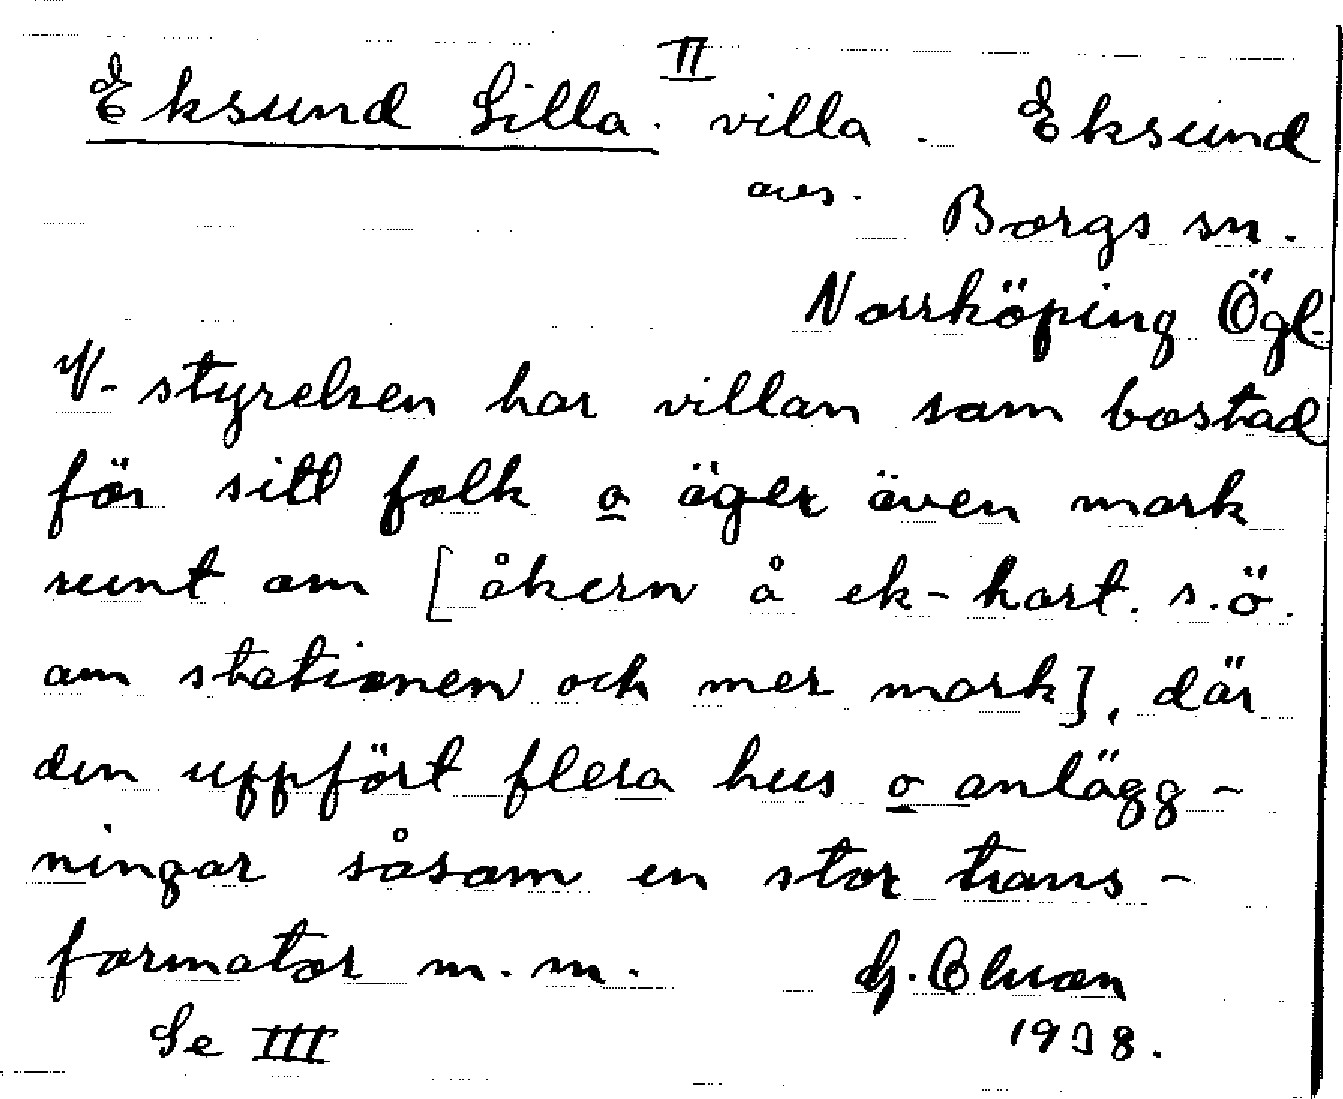 II
Eksund Lilla. villa. Eksund
avs. Borgs sn.
Norrköping Ögl.
V-styrelsen har villan som bostad
för sitt folk o äger även mark
runt om [åkern å ek-kart. s.ö.
om stationen och mer mark], där
den uppfört flera hus o anlägg-
ningar såsom en stor trans-
formator m.m. G.
Se III 1938.